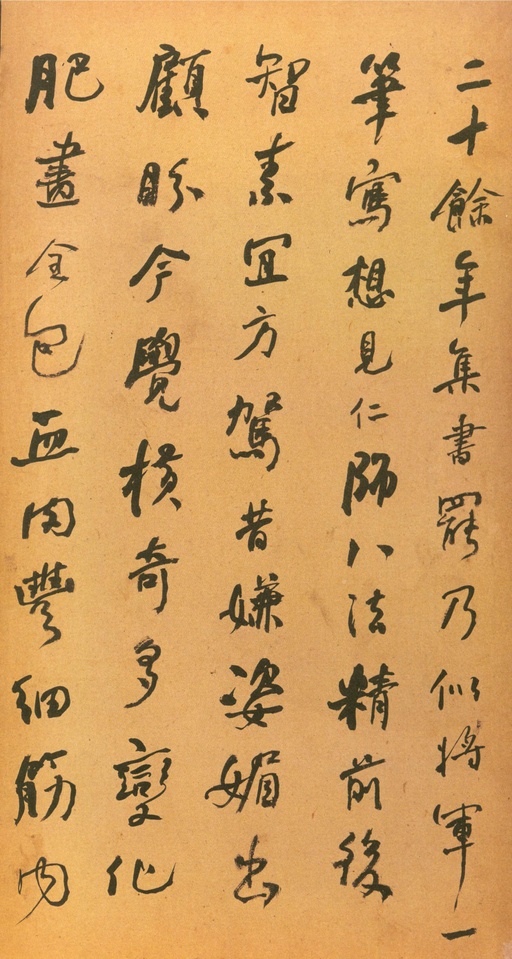 二十餘年集書罷乃似將軍一
筆寫想見仁師八法精前後
智素宜方駕昔嫌姿媚出
顧盼今覺橫奇多變化
肥畫全包血肉豐細筋内